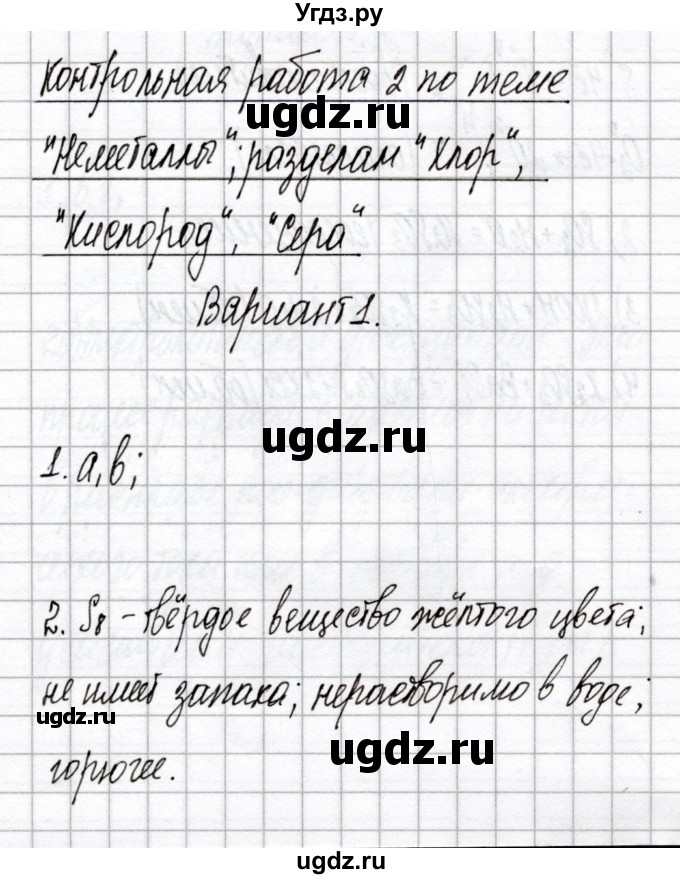 Угдз.ру
Контрольная работа 2 по теме
ugdz.ru
"Неметаллы"; разделам "Хлор",
"Кислород", "Сера"
Вариант 1.
ugdz.ru
1. а, в;
2. S8 - твёрдое вещество жёлтого цвета;
не имеет запаха; нерастворимо в воде;
ugdz.ru
ugdz.ru
горючее.
ugdz.ru